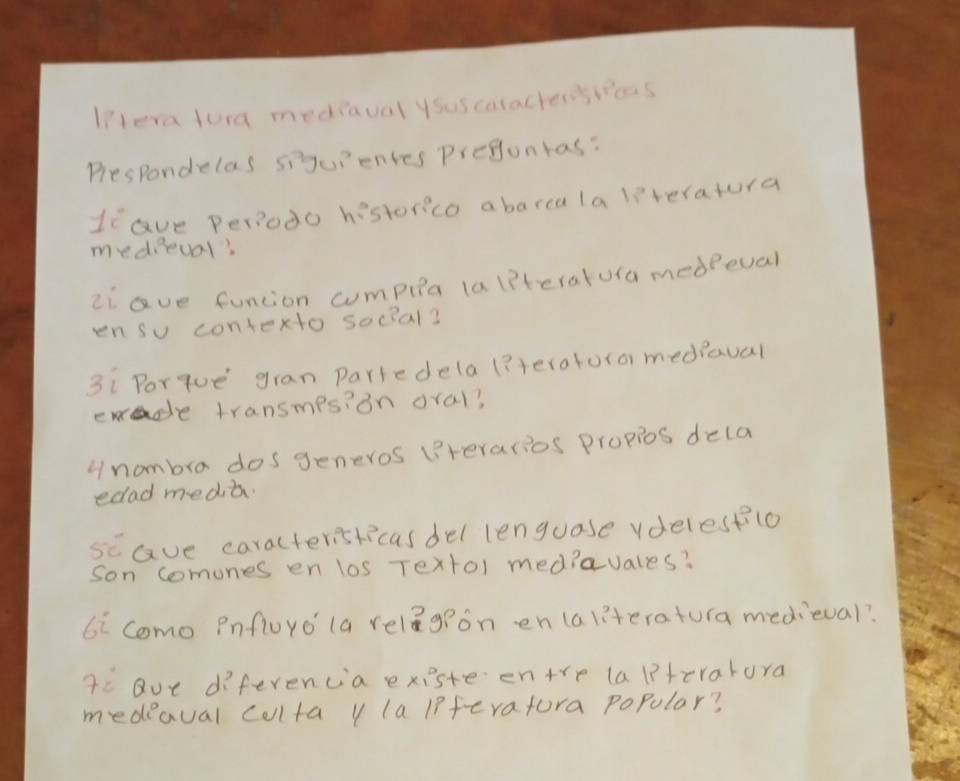 litera tura mediaval y sus caracteristicas
Respondelas siguientes preguntas:
1¿ que periodo historico abarca la literatura
medieval?
2¿ que funcion cumplia la literatura medieval
en su contexto social?
3¿ Por qué gran parte de la literatura mediaval
erade transmision oral?
4 nombra dos generos literarios propios dela
edad media.
5¿ que caracteristicas del lenguaje y delestilo
son comunes en los Textos mediavales?
6¿ como influyó la religión en la literatura medieval?
7¿ Que diferencia existe entre la literatura
mediaval culta y la literatura popular?